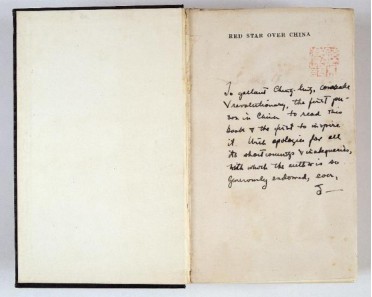 RED STAR OVER CHINA
To gallant Ching-ling, comrade
& revolutionary, the first per-
son in China to read this
book & the first to inspire
it. With apologies for all
its shortcomings & inadequacies,
with which the author is so
generously endowed, ever,